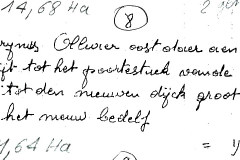 14,68 Ha
8
rynus Ollivier oost daer aen
ijt tot het poortestuck vande
tot den nieuwen dijck groot
het nieuw bedelf
1,64 Ha